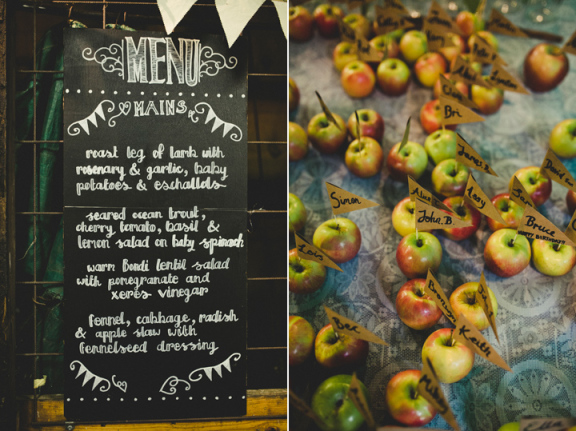 MENU
MAINS
roast leg of lamb with
rosemary & garlic, baby
potatoes & eschallots
seared ocean trout,
cherry tomato, basil &
lemon salad on baby spinach
warm Bondi lentil salad
with pomegranate and
xeres vinegar
fennel, cabbage, radish
& apple slaw with
fennelseed dressing
Bri
James
David
Simon
Alice
Lucy
Sam
John.B
Bruce
HAPPY BIRTHDAY!
Colin
Bec
Keith